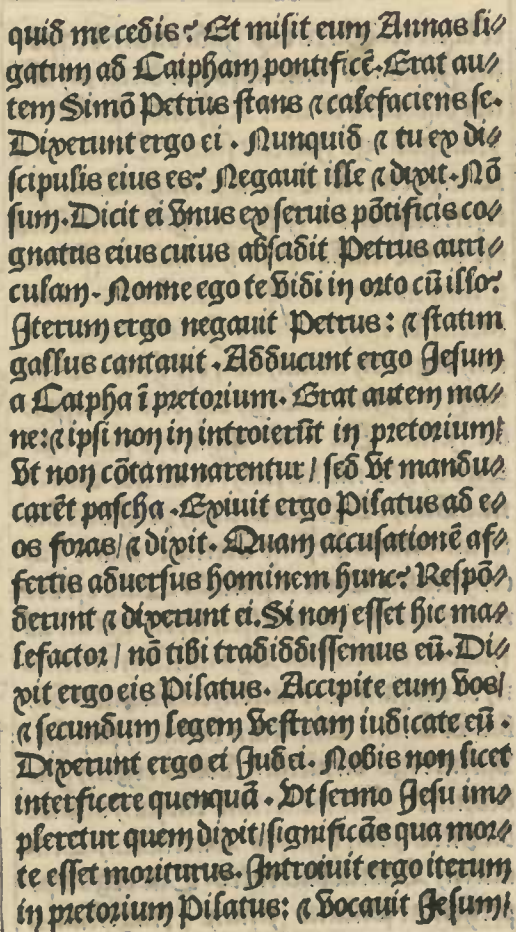 quid me cedis? Et misit eum Annas li⸗
gatum ad Caipham pontificē. Erat au⸗
tem Simō Petrus stans ⁊ calefaciens se.
Dixerunt ergo ei. Nunquid ⁊ tu ex di⸗
scipulis eius es? Negauit ille ⁊ dixit. Nō
sum. Dicit ei vnus ex seruis pōtificis co⸗
gnatus eius cuius abscidit Petrus auri⸗
culam. Nonne ego te vidi in orto cū illo?
Iterum ergo negauit Petrus: ⁊ statim
gallus cantauit. Adducunt ergo Jesum
a Caipha ī pretorium. Erat autem ma⸗
ne: ⁊ ipsi non in introierūt in pretorium/
vt non cōtaminarentur / sed vt mandu⸗
carēt pascha. Exiuit ergo Pilatus ad e⸗
os foras/ ⁊ dixit. Quam accusationē af⸗
fertis aduersus hominem hunc? Respō⸗
derunt ⁊ dixerunt ei. Si non esset hic ma⸗
lefactor / nō tibi tradiddissemus eū. Di⸗
xit ergo eis Pilatus. Accipite eum vos/
⁊ secundum legem vestram iudicate eū.
Dixerunt ergo ei Judei. Nobis non licet
interficere quenquā. Vt sermo Jesu im⸗
pleretur quem dixit/ significās qua mor⸗
te esset moriturus. Introiuit ergo iterum
in pretorium Pilatus: ⁊ vocauit Jesum/